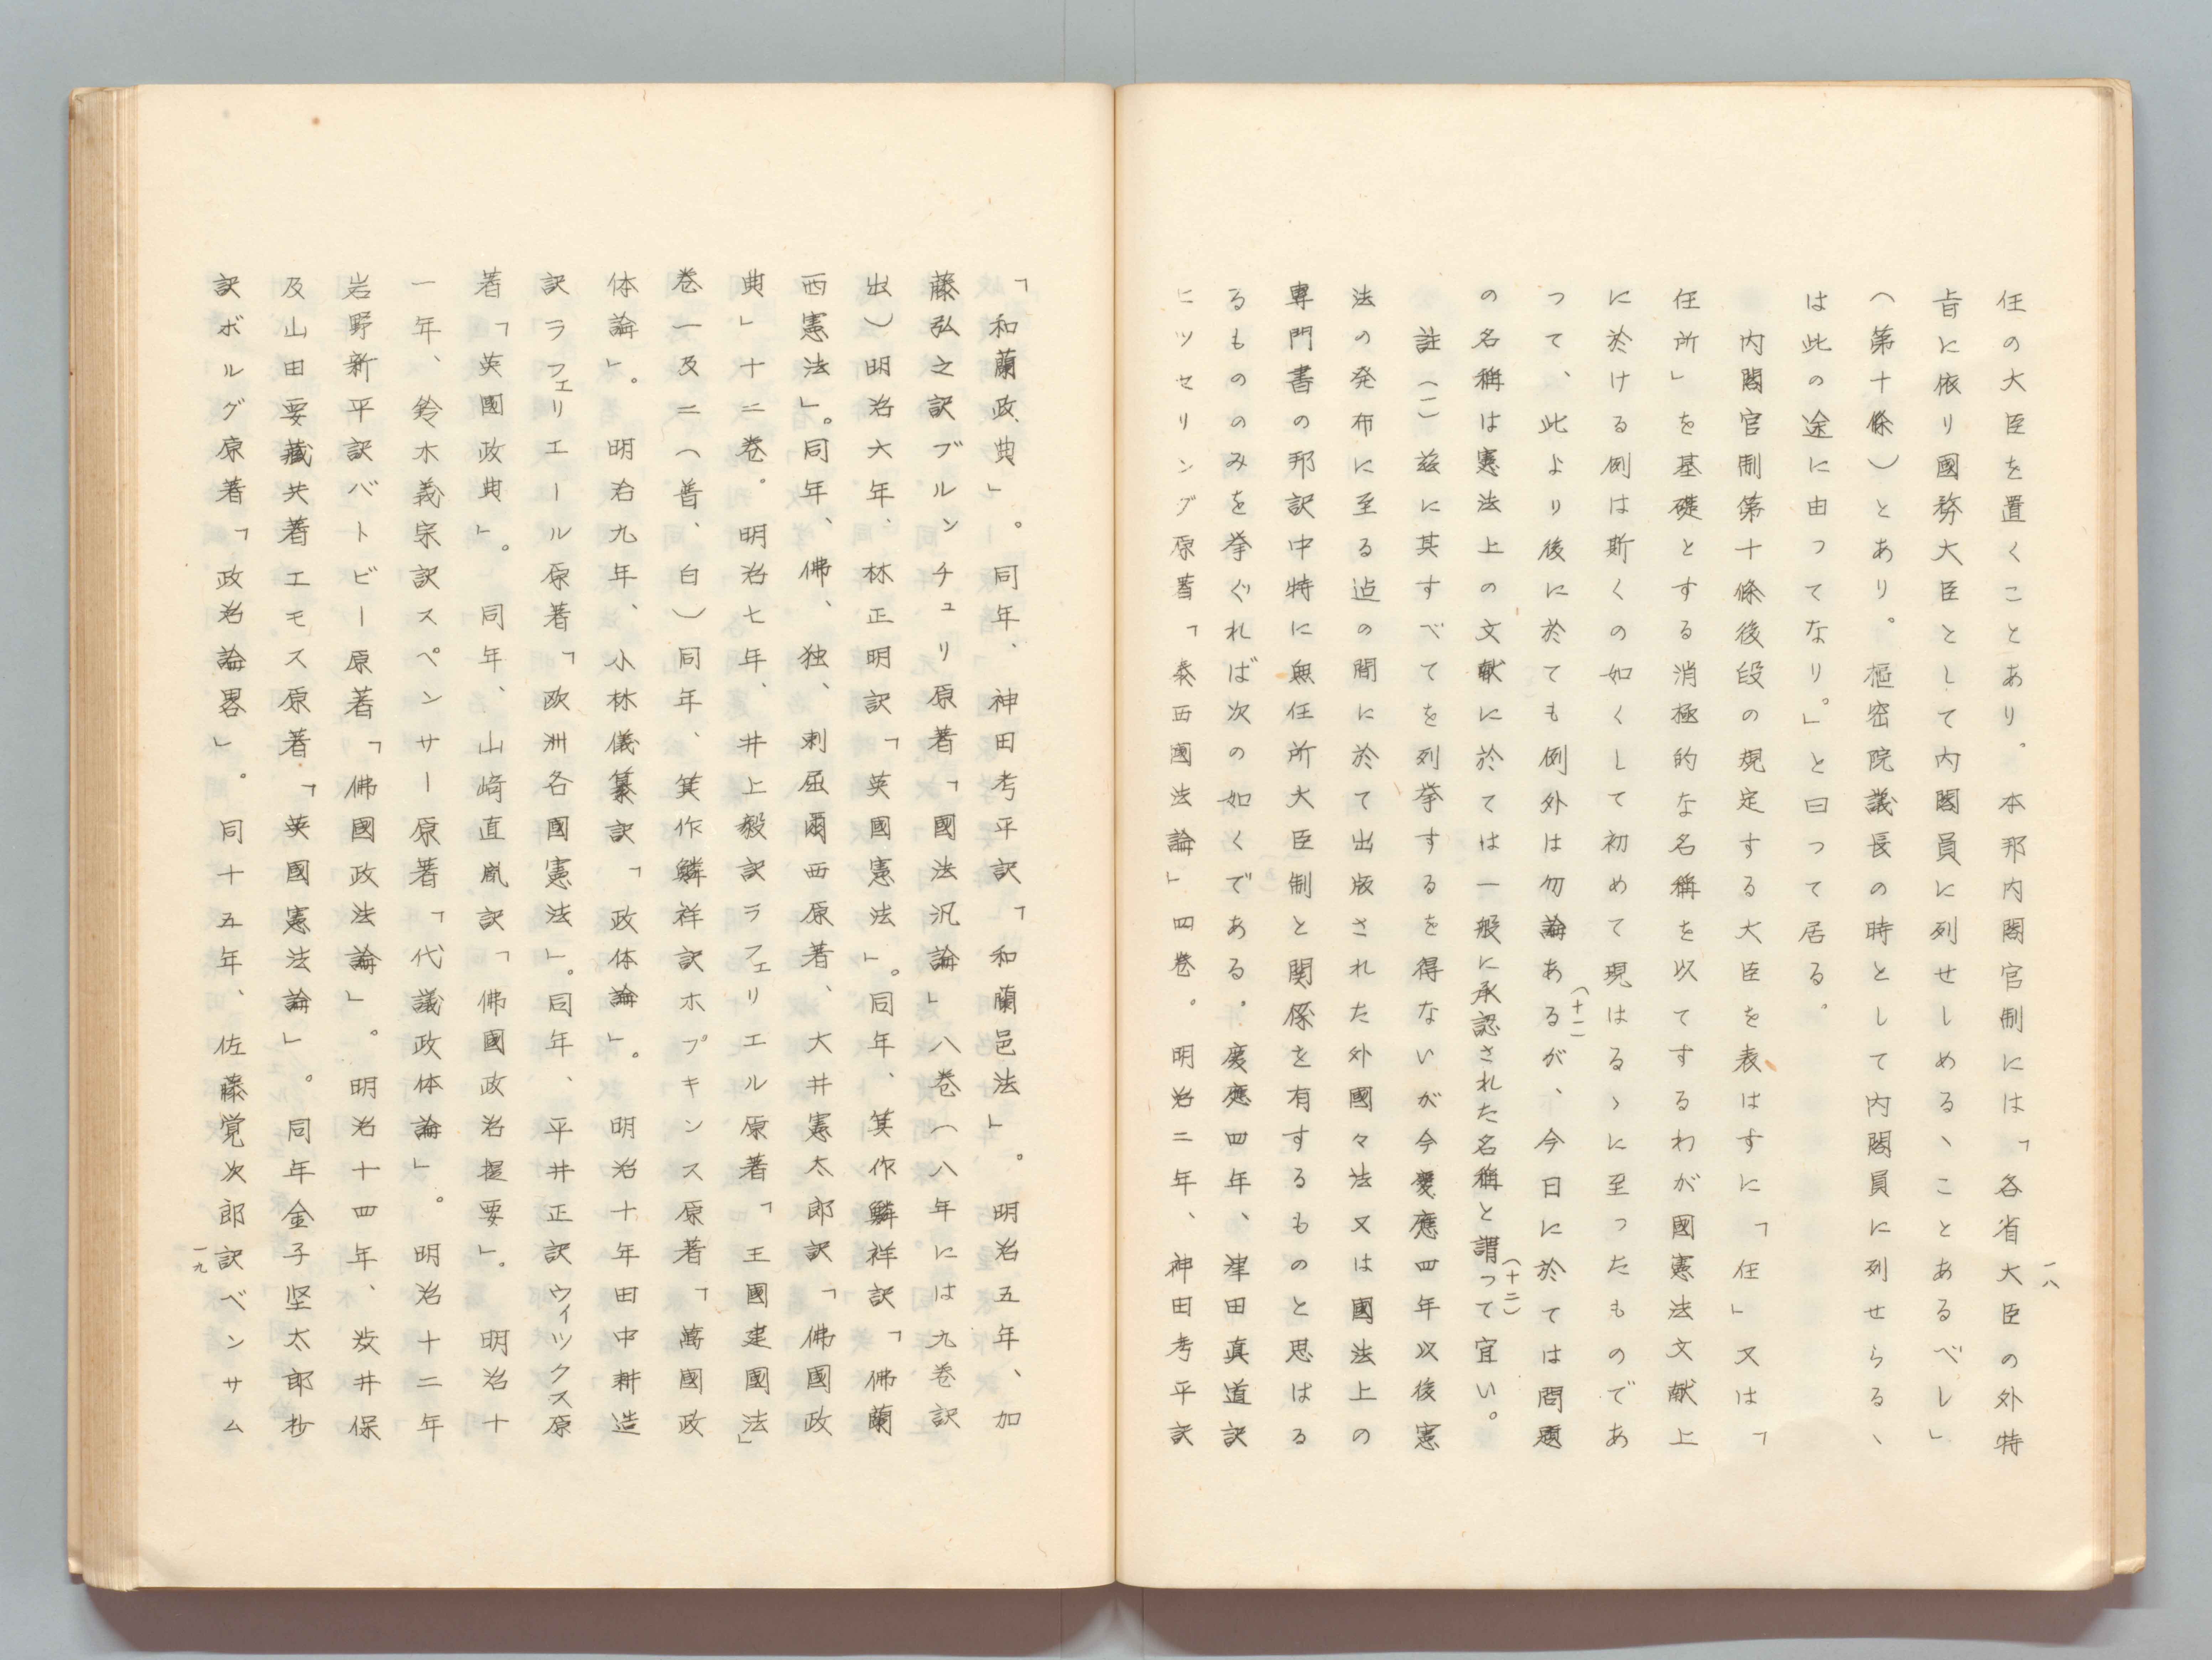 任の大臣を置くことあり。本邦内閣官制には「各省大臣の外特
旨に依り國務大臣として内閣員に列せしめるヽことあるべし」
（第十條）とあり。樞密院議長の時として内閣員に列せらるヽ
は此の途に由つてなり。」と曰つて居る。
内閣官制第十條後段の規定する大臣を表はすに「任」又は「
任所」を基礎とする消極的な名稱を以てするわが國憲法文献上
に於ける例は斯くの如くして初めて現はるヽに至つたものであ
つて、此より後に於ても例外は勿論あるが、今日に於ては問題
（十一）
の名稱は憲法上の文献に於ては一般に承認された名稱と謂つて宜い。
（十二）
註（一）茲に其すべてを列挙するを得ないが今慶應四年以後憲
法の発布に至る迠の間に於て出版された外國々法又は國法上の
専門書の邦訳中特に無任所大臣制と関係を有するものと思はる
るもののみを挙ぐれば次の如くである。慶應四年、津田真道訳
ヒツセリング原著「泰西國法論」四巻。明治二年、神田孝平訳
一八
「和蘭政典」。同年、神田孝平訳「和蘭邑法」。明治五年、加
藤弘之訳ブルンチュリ原著「國法汎論」八巻（八年には九巻訳
出）明治六年、林正明訳「英國憲法」。同年、箕作麟祥訳「佛蘭
西憲法」。同年、佛、独、刺屈爾西原著、大井憲太郎訳「佛國政
典」十二巻。明治七年、井上毅訳ラフェリエル原著「王國建國法」
巻一及二（普、白）同年、箕作麟祥訳ホプキンス原著「萬國政
体論」。明治九年、小林儀纂訳「政体論」。明治十年田中耕造
訳ラフェリエール原著「欧洲各國憲法」。同年、平井正訳ウィックス原
著「英國政典」。同年、山﨑直胤訳「佛國政治提要」。明治十
一年、鈴木義宗訳スペンサー原著「代議政体論」。明治十二年
岩野新平訳バトビー原著「佛國政法論」。明治十四年、炭井保
及山田要藏共著エモス原著「英國憲法論」。同年金子堅太郎抄
訳ボルグ原著「政治論畧」。同十五年、佐藤覚次郎訳ベンサム
一九